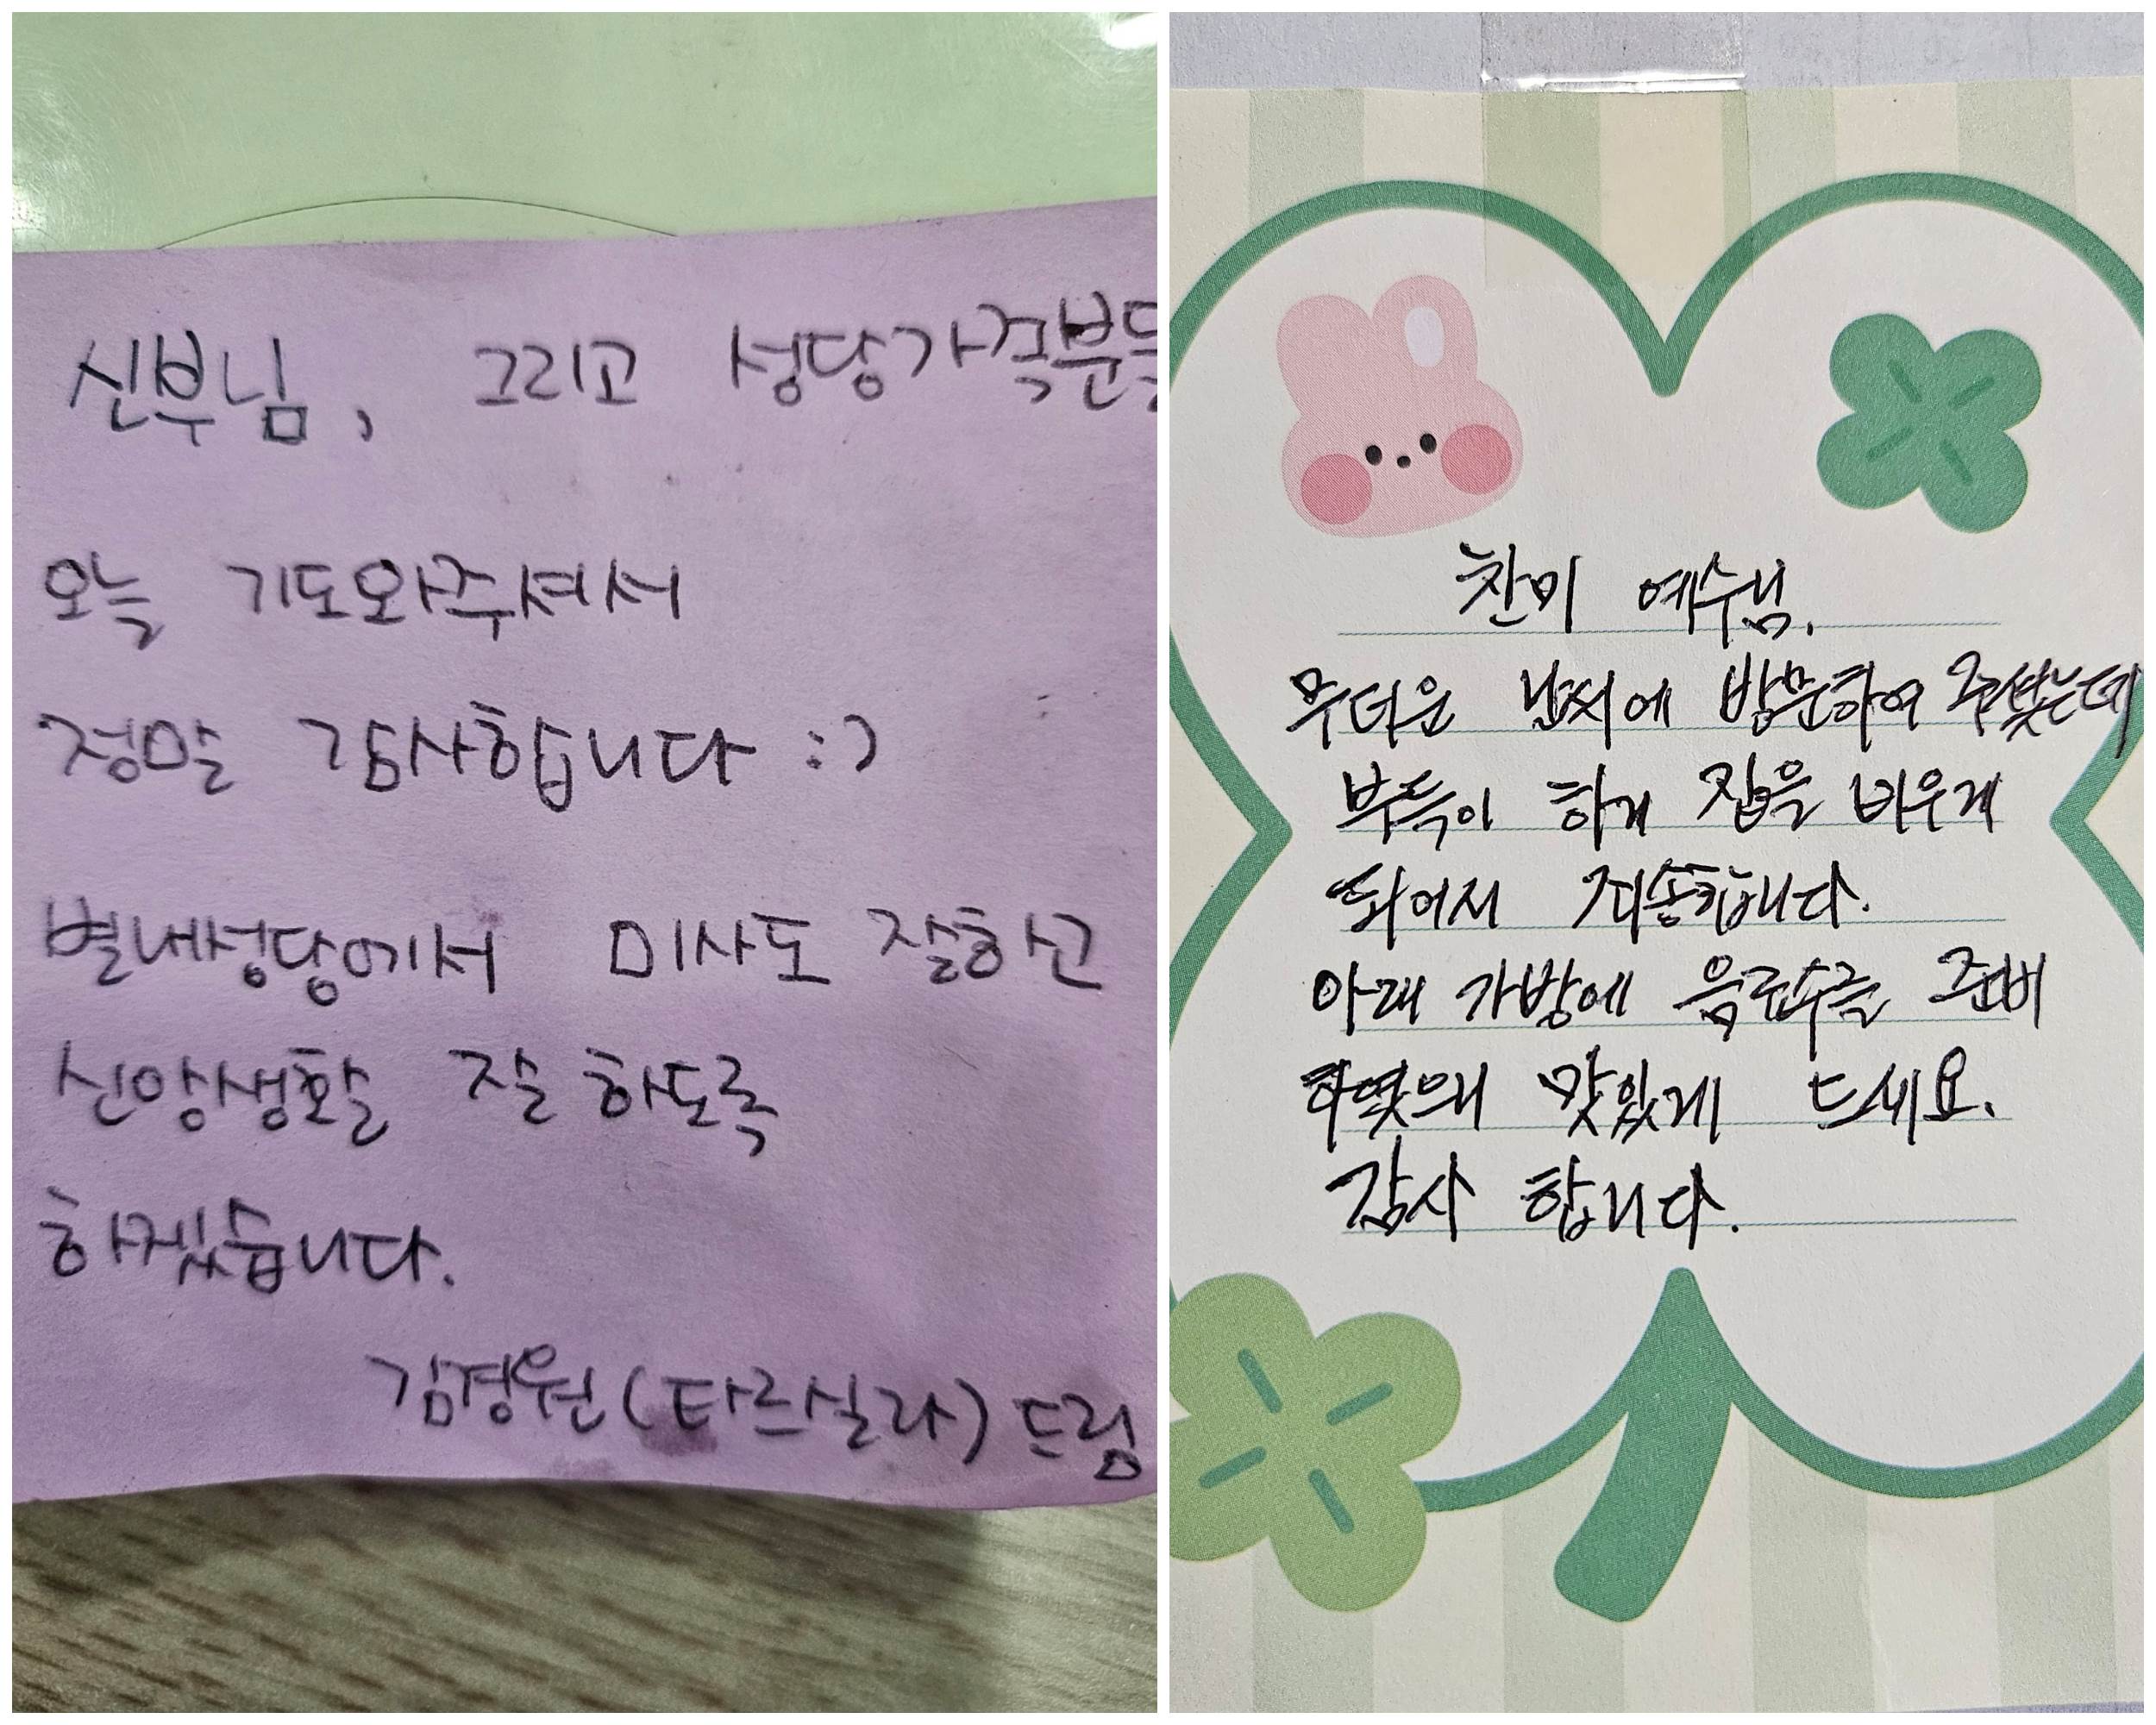 신부님, 그리고 성당가족분들
오늘 기도와주셔서
정말 감사합니다 :)
별내성당에서 미사도 잘하고
신앙생활 잘 하도록
하겠습니다.
김경원(타르실라) 드림
찬미 예수님.
무더운 날씨에 방문하여 주셨는데
부득이 하게 집을 비우게
되어서 죄송합니다.
아래 가방에 음료수를 준비
하였으니 맛있게 드세요.
감사 합니다.